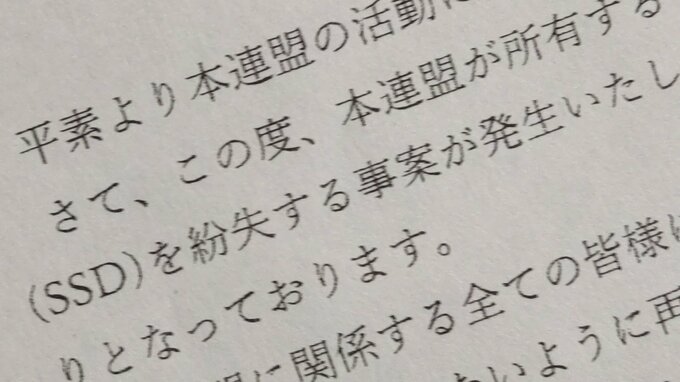 平素より本連盟の活動に
さて、この度、本連盟が所有する
(SSD)を紛失する事案が発生いたし
りとなっております。
に関係する全ての皆様
いように再